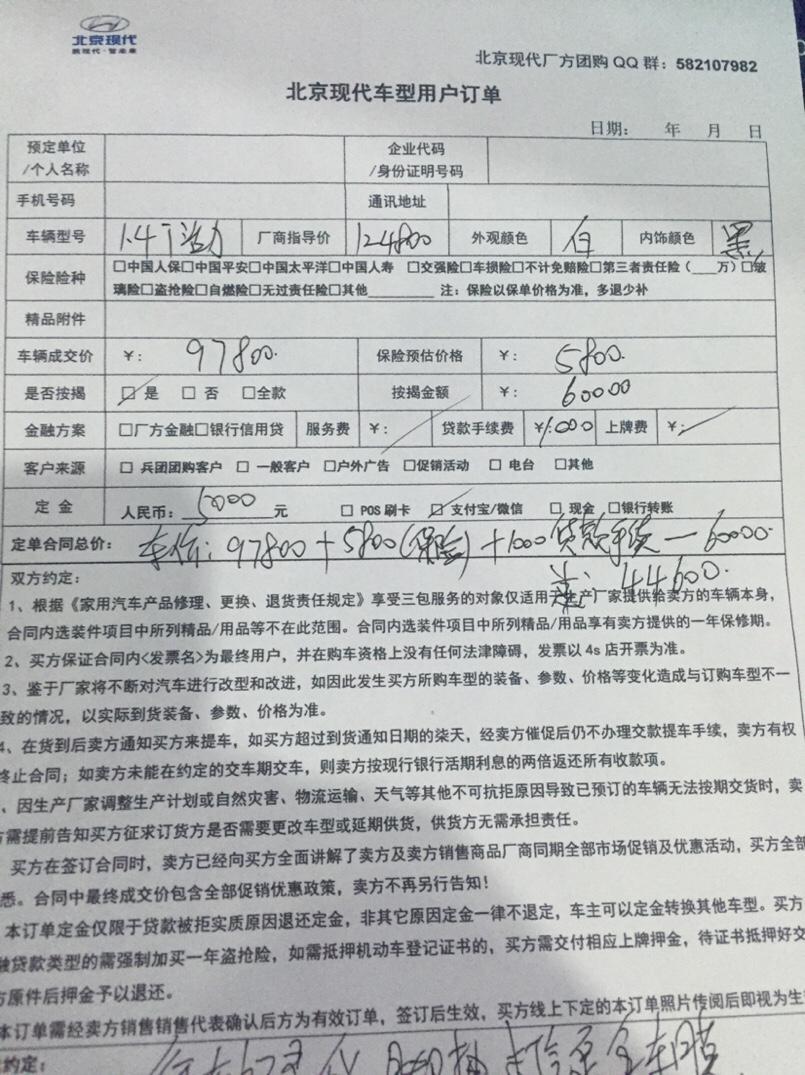 北京现代
北京现代厂方团购 QQ 群：582107982
北京现代车型用户订单
日期： 年 月 日
预定单位/个人名称 企业代码/身份证明号码
手机号码 通讯地址
车辆型号 1.4T活力 厂商指导价 124800 外观颜色 白 内饰颜色 黑
保险险种 □中国人保□中国平安□中国太平洋□中国人寿 □交强险□车损险□不计免赔险□第三者责任险（___万）□玻
璃险□盗抢险□自燃险□无过责任险□其他________ 注：保险以保单价格为准，多退少补
精品附件
车辆成交价 ￥： 97800. 保险预估价格 ￥： 5800.
是否按揭 □ 是 □ 否 □全款 按揭金额 ￥： 60000
金融方案 □厂方金融□银行信用贷 服务费 ￥： 贷款手续费 ￥1000 上牌费 ￥：
客户来源 □ 兵团团购客户 □ 一般客户 □户外广告 □促销活动 □ 电台 □其他
定 金 人民币： 5000 元 □ POS 刷卡 □ 支付宝/微信 □ 现金 □银行转账
定单合同总价： 车价：97800+5800(保险)+1000贷款手续—60000.
44600.
双方约定：
1、根据《家用汽车产品修理、更换、退货责任规定》享受三包服务的对象仅适用于生产厂家提供给卖方的车辆本身，
合同内选装件项目中所列精品/用品等不在此范围。合同内选装件项目中所列精品/用品享有卖方提供的一年保修期。
2、买方保证合同内<发票名>为最终用户，并在购车资格上没有任何法律障碍，发票以 4s 店开票为准。
3、鉴于厂家将不断对汽车进行改型和改进，如因此发生买方所购车型的装备、参数、价格等变化造成与订购车型不一
致的情况，以实际到货装备、参数、价格为准。
4、在货到后卖方通知买方来提车，如买方超过到货通知日期的柒天，经卖方催促后仍不办理交款提车手续，卖方有权
终止合同；如卖方未能在约定的交车期交车，则卖方按现行银行活期利息的两倍返还所有收款项。
、因生产厂家调整生产计划或自然灾害、物流运输、天气等其他不可抗拒原因导致已预订的车辆无法按期交货时，卖
方需提前告知买方征求订货方是否需要更改车型或延期供货，供货方无需承担责任。
买方在签订合同时，卖方已经向买方全面讲解了卖方及卖方销售商品厂商同期全部市场促销及优惠活动，买方全部
悉。合同中最终成交价包含全部促销优惠政策，卖方不再另行告知！
本订单定金仅限于贷款被拒实质原因退还定金，非其它原因定金一律不退定，车主可以定金转换其他车型。买方
融贷款类型的需强制加买一年盗抢险，如需抵押机动车登记证书的，买方需交付相应上牌押金，待证书抵押好交
方原件后押金予以退还。
本订单需经卖方销售销售代表确认后方为有效订单，签订后生效，买方线上下定的本订单照片传阅后即视为生
约定： 全车膜